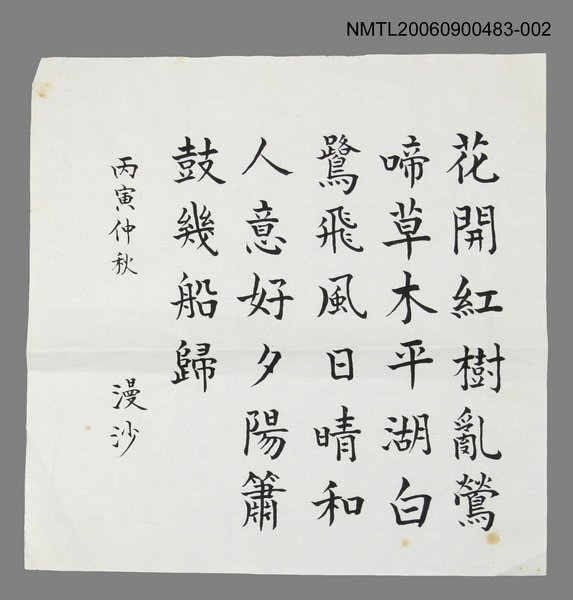 NMTL20060900483-002
花開紅樹亂鶯
啼草木平湖白
鷺飛風日晴和
人意好夕陽簫
鼓幾船歸
丙寅仲秋 漫沙